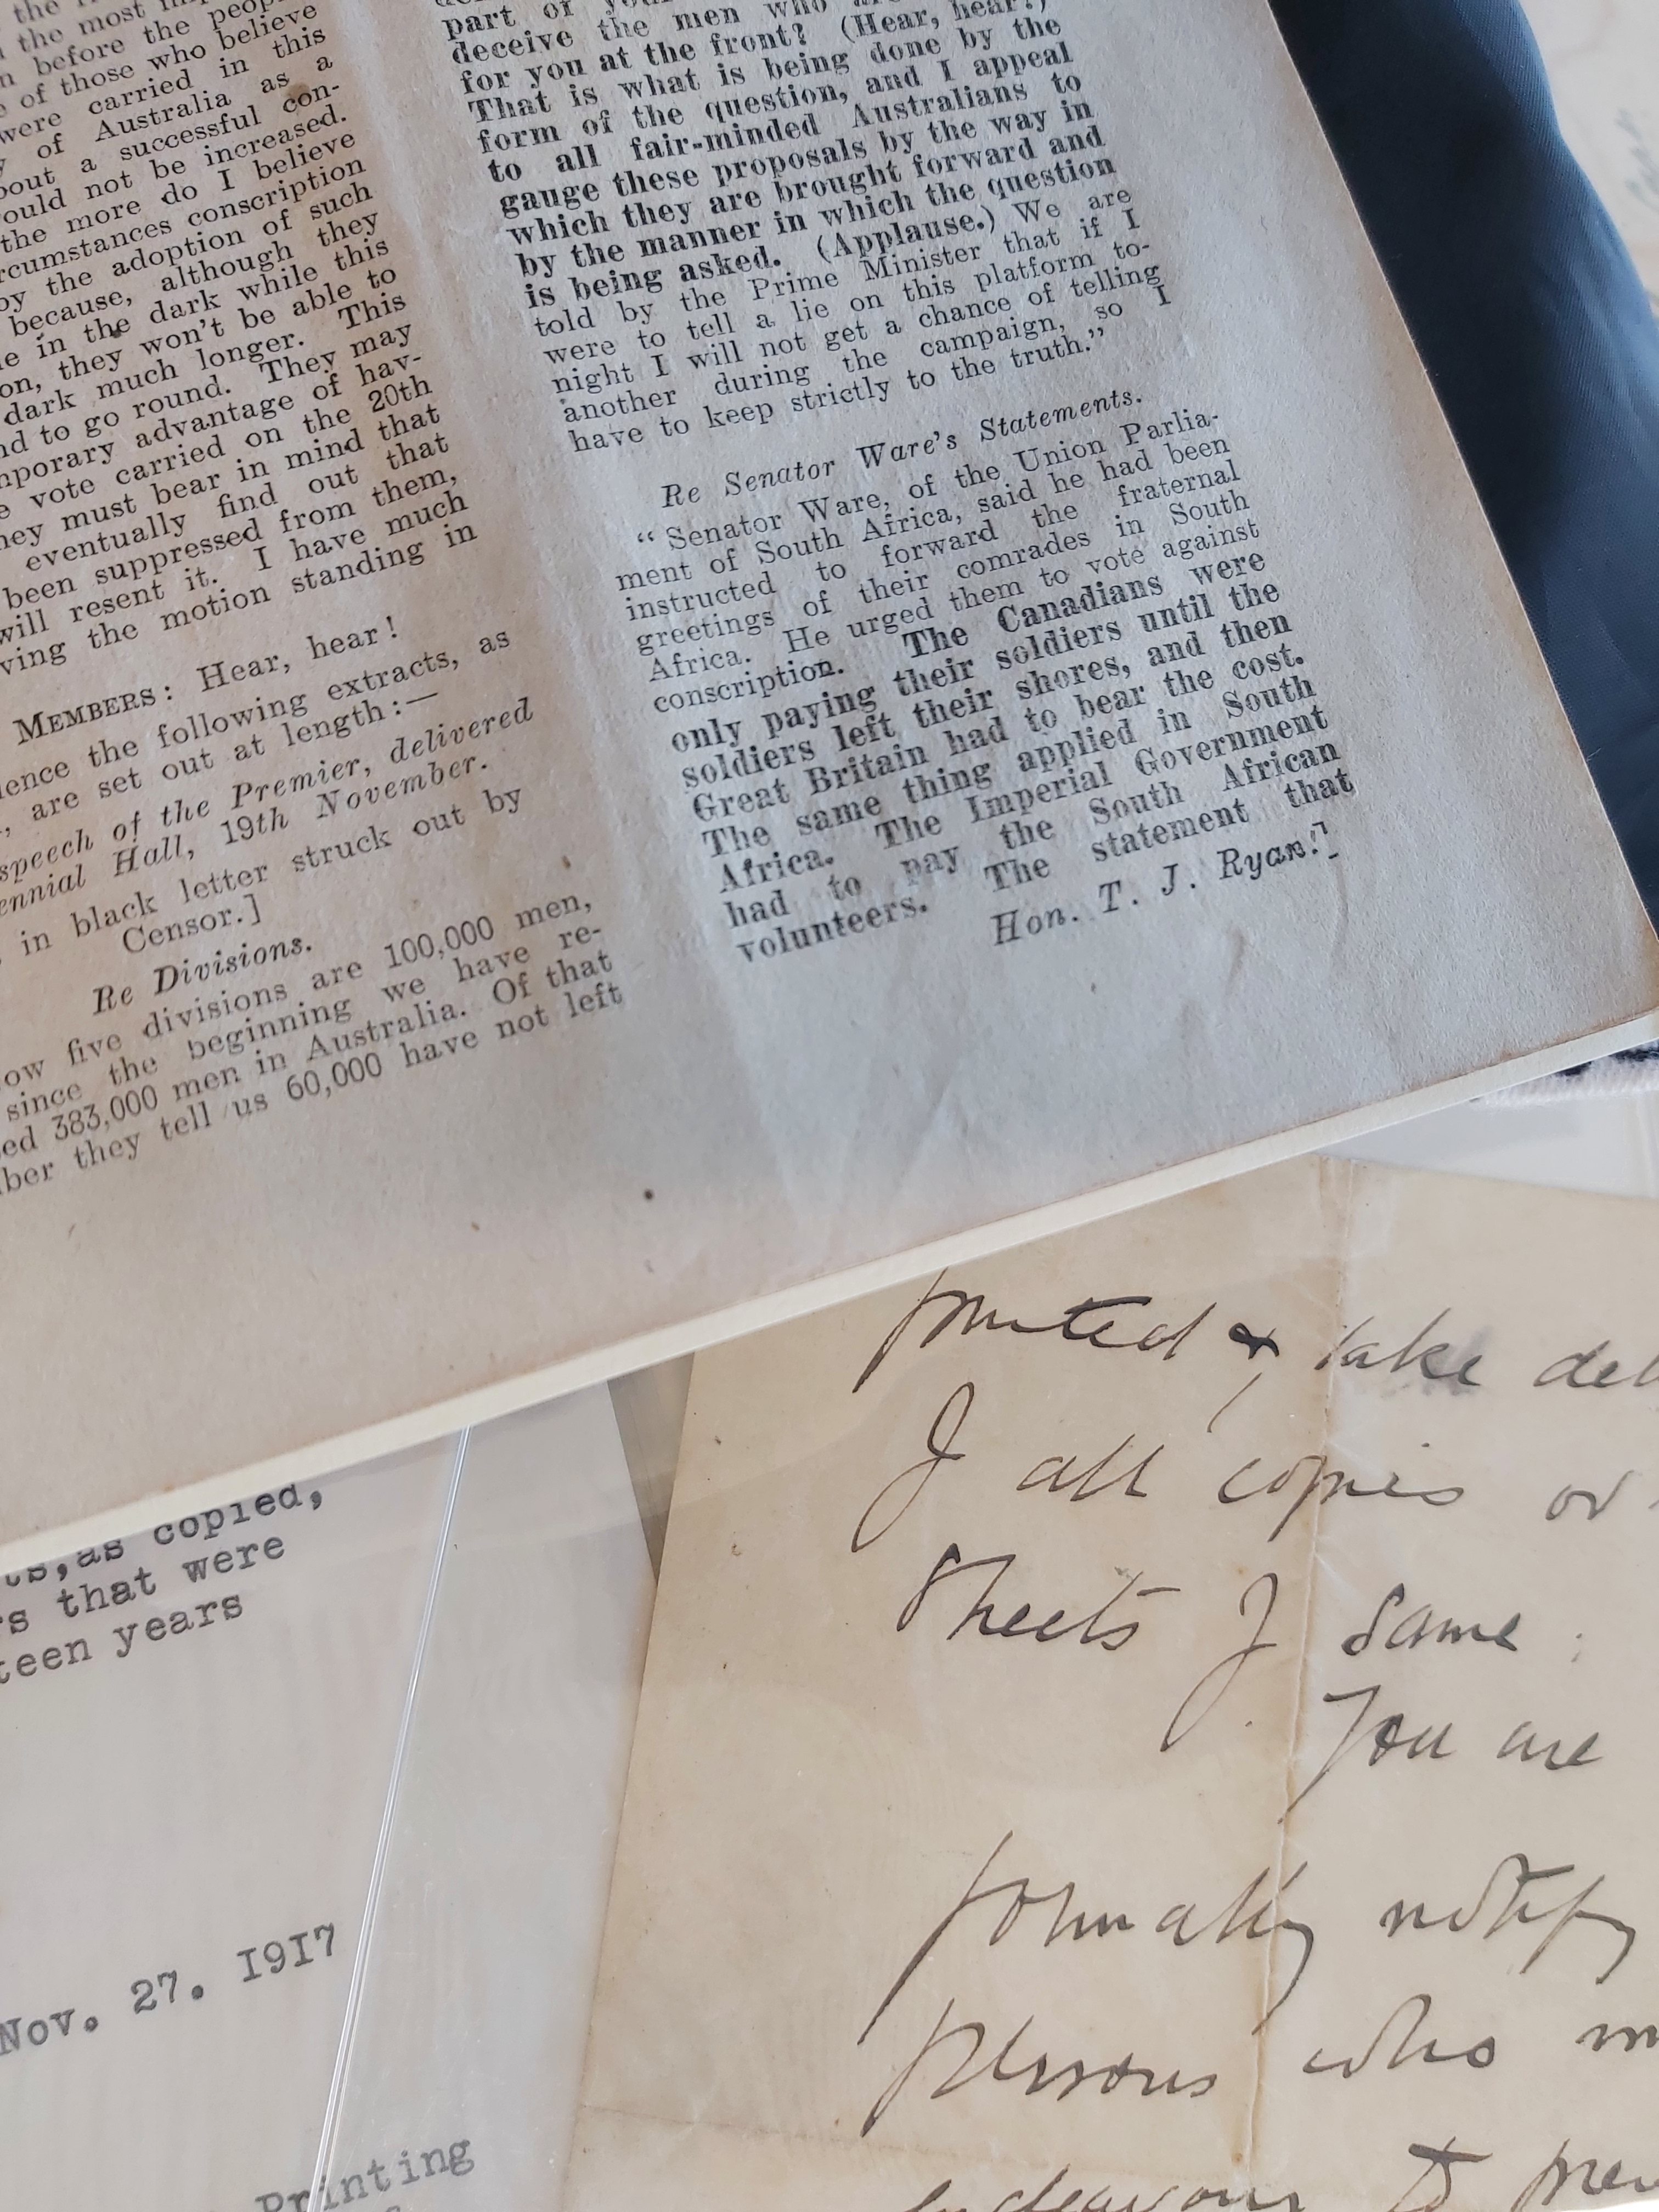 the most
before the people
of those who believe
were carried in this
of Australia as a
a successful con-
ould not be increased.
the more do I believe
rcumstances conscription
by the adoption of such
because, although they
in the dark while this
on, they won't be able to
dark much longer. This
nd to go round. They may
mporary advantage of hav-
vote carried on the 20th
ey must bear in mind that
eventually find out that
been suppressed from them,
will resent it. I have much
ving the motion standing in
MEMBERS: Hear, hear!
ence the following extracts, as
, are set out at length:—
speech of the Premier, delivered
ennial Hall, 19th November.
in black letter struck out by
Censor.]
Re Divisions.
ow five divisions are 100,000 men,
since the beginning we have re-
ed 383,000 men in Australia. Of that
ber they tell us 60,000 have not left
part of
deceive the men who
for you at the front? (Hear, hear!)
That is what is being done by the
form of the question, and I appeal
to all fair-minded Australians to
gauge these proposals by the way in
which they are brought forward and
by the manner in which the question
is being asked. (Applause.) We are
told by the Prime Minister that if I
were to tell a lie on this platform to-
night I will not get a chance of telling
another during the campaign, so I
have to keep strictly to the truth."
Re Senator Ware's Statements.
"Senator Ware, of the Union Parlia-
ment of South Africa, said he had been
instructed to forward the fraternal
greetings of their comrades in South
Africa. He urged them to vote against
conscription. The Canadians were
only paying their soldiers until the
soldiers left their shores, and then
Great Britain had to bear the cost.
The same thing applied in South
Africa. The Imperial Government
had to pay the South African
volunteers. The statement that
Hon. T. J. Ryan.]
ts,as copied,
rs that were
teen years
Nov. 27. 1917
Printing
printed & take del
of all copies or
sheets of same.
You are
formally notify
persons who m
endeavour to